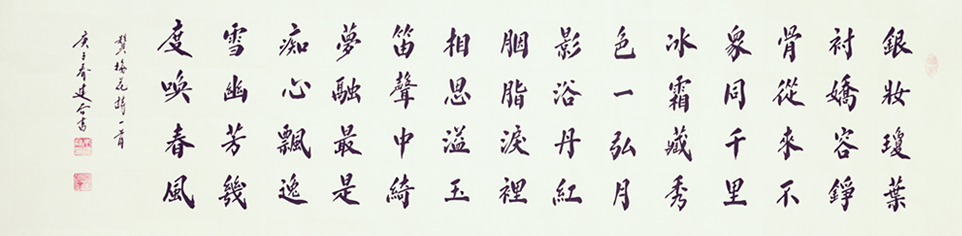 銀妝瓊葉
衬嬌容錚
骨從來不
衆同千里
冰霜藏秀
色一弘月
影浴丹紅
胭脂淚裡
相思溢玉
笛聲中綺
夢融最是
痴心飄逸
雪幽芳幾
度喚春風
贊梅花詩一首
庚子春建合書